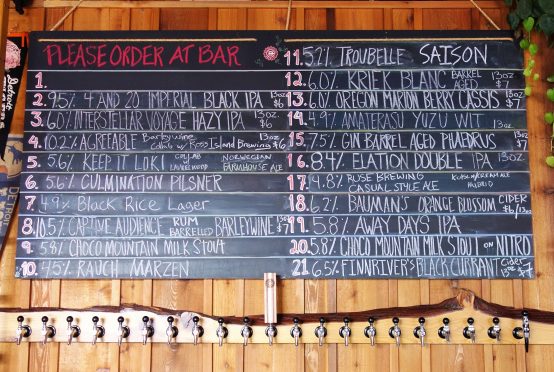 PLEASE ORDER AT BAR
1.
2. 9.5% F AND 20 IMPERIAL BLACK IPA 13oz $6
3. 6.0% INTERSTELLAR VOYAGE HAZY IPA 13oz $6
4. 10.2% AGREEABLE Barleywine collab w/ Ross Island Brewing 13oz $6
5. 5.6% KEEP IT LOKI COLLAB W/ LEIKERWOOD NORWEGIAN FARMHOUSE ALE
6. 5.6% CULMINATION PILSNER
7. 4.9% Black Rice Lager
8. 10.5% CAPTIVE AUDIENCE RUM BARRELLED BARLEYWINE 13oz $7
9. 5.8% CHOCO MOUNTAIN MILK STOUT
10. 4.5% RAUCH MARZEN
11. 5.2% TROUBELLE SAISON
12. 6.0% KRIEK BLANC BARREL AGED 13oz $7
13. 6.0% OREGON MARION BERRY CASSIS 13oz $7
14. 4.9% AMATERASU YUZU WIT 13oz
15. 7.5% GIN BARREL AGED PHAEDRUS 13oz $7
16. 8.4% ELATION DOUBLE IPA 13oz
17. 4.8% RUSE BREWING CASUAL STYLE ALE KOLSCH/CREAM ALE HYBRID
18. 6.2% BAUMAN'S ORANGE BLOSSOM CIDER $6/13oz
19. 5.8% AWAY DAYS IPA
20. 5.8% CHOCO MOUNTAIN MILK STOUT ON NITRO
21. 6.5% FINNRIVER'S BLACK CURRANT Cider 13oz $7
Detroit
DETROIT